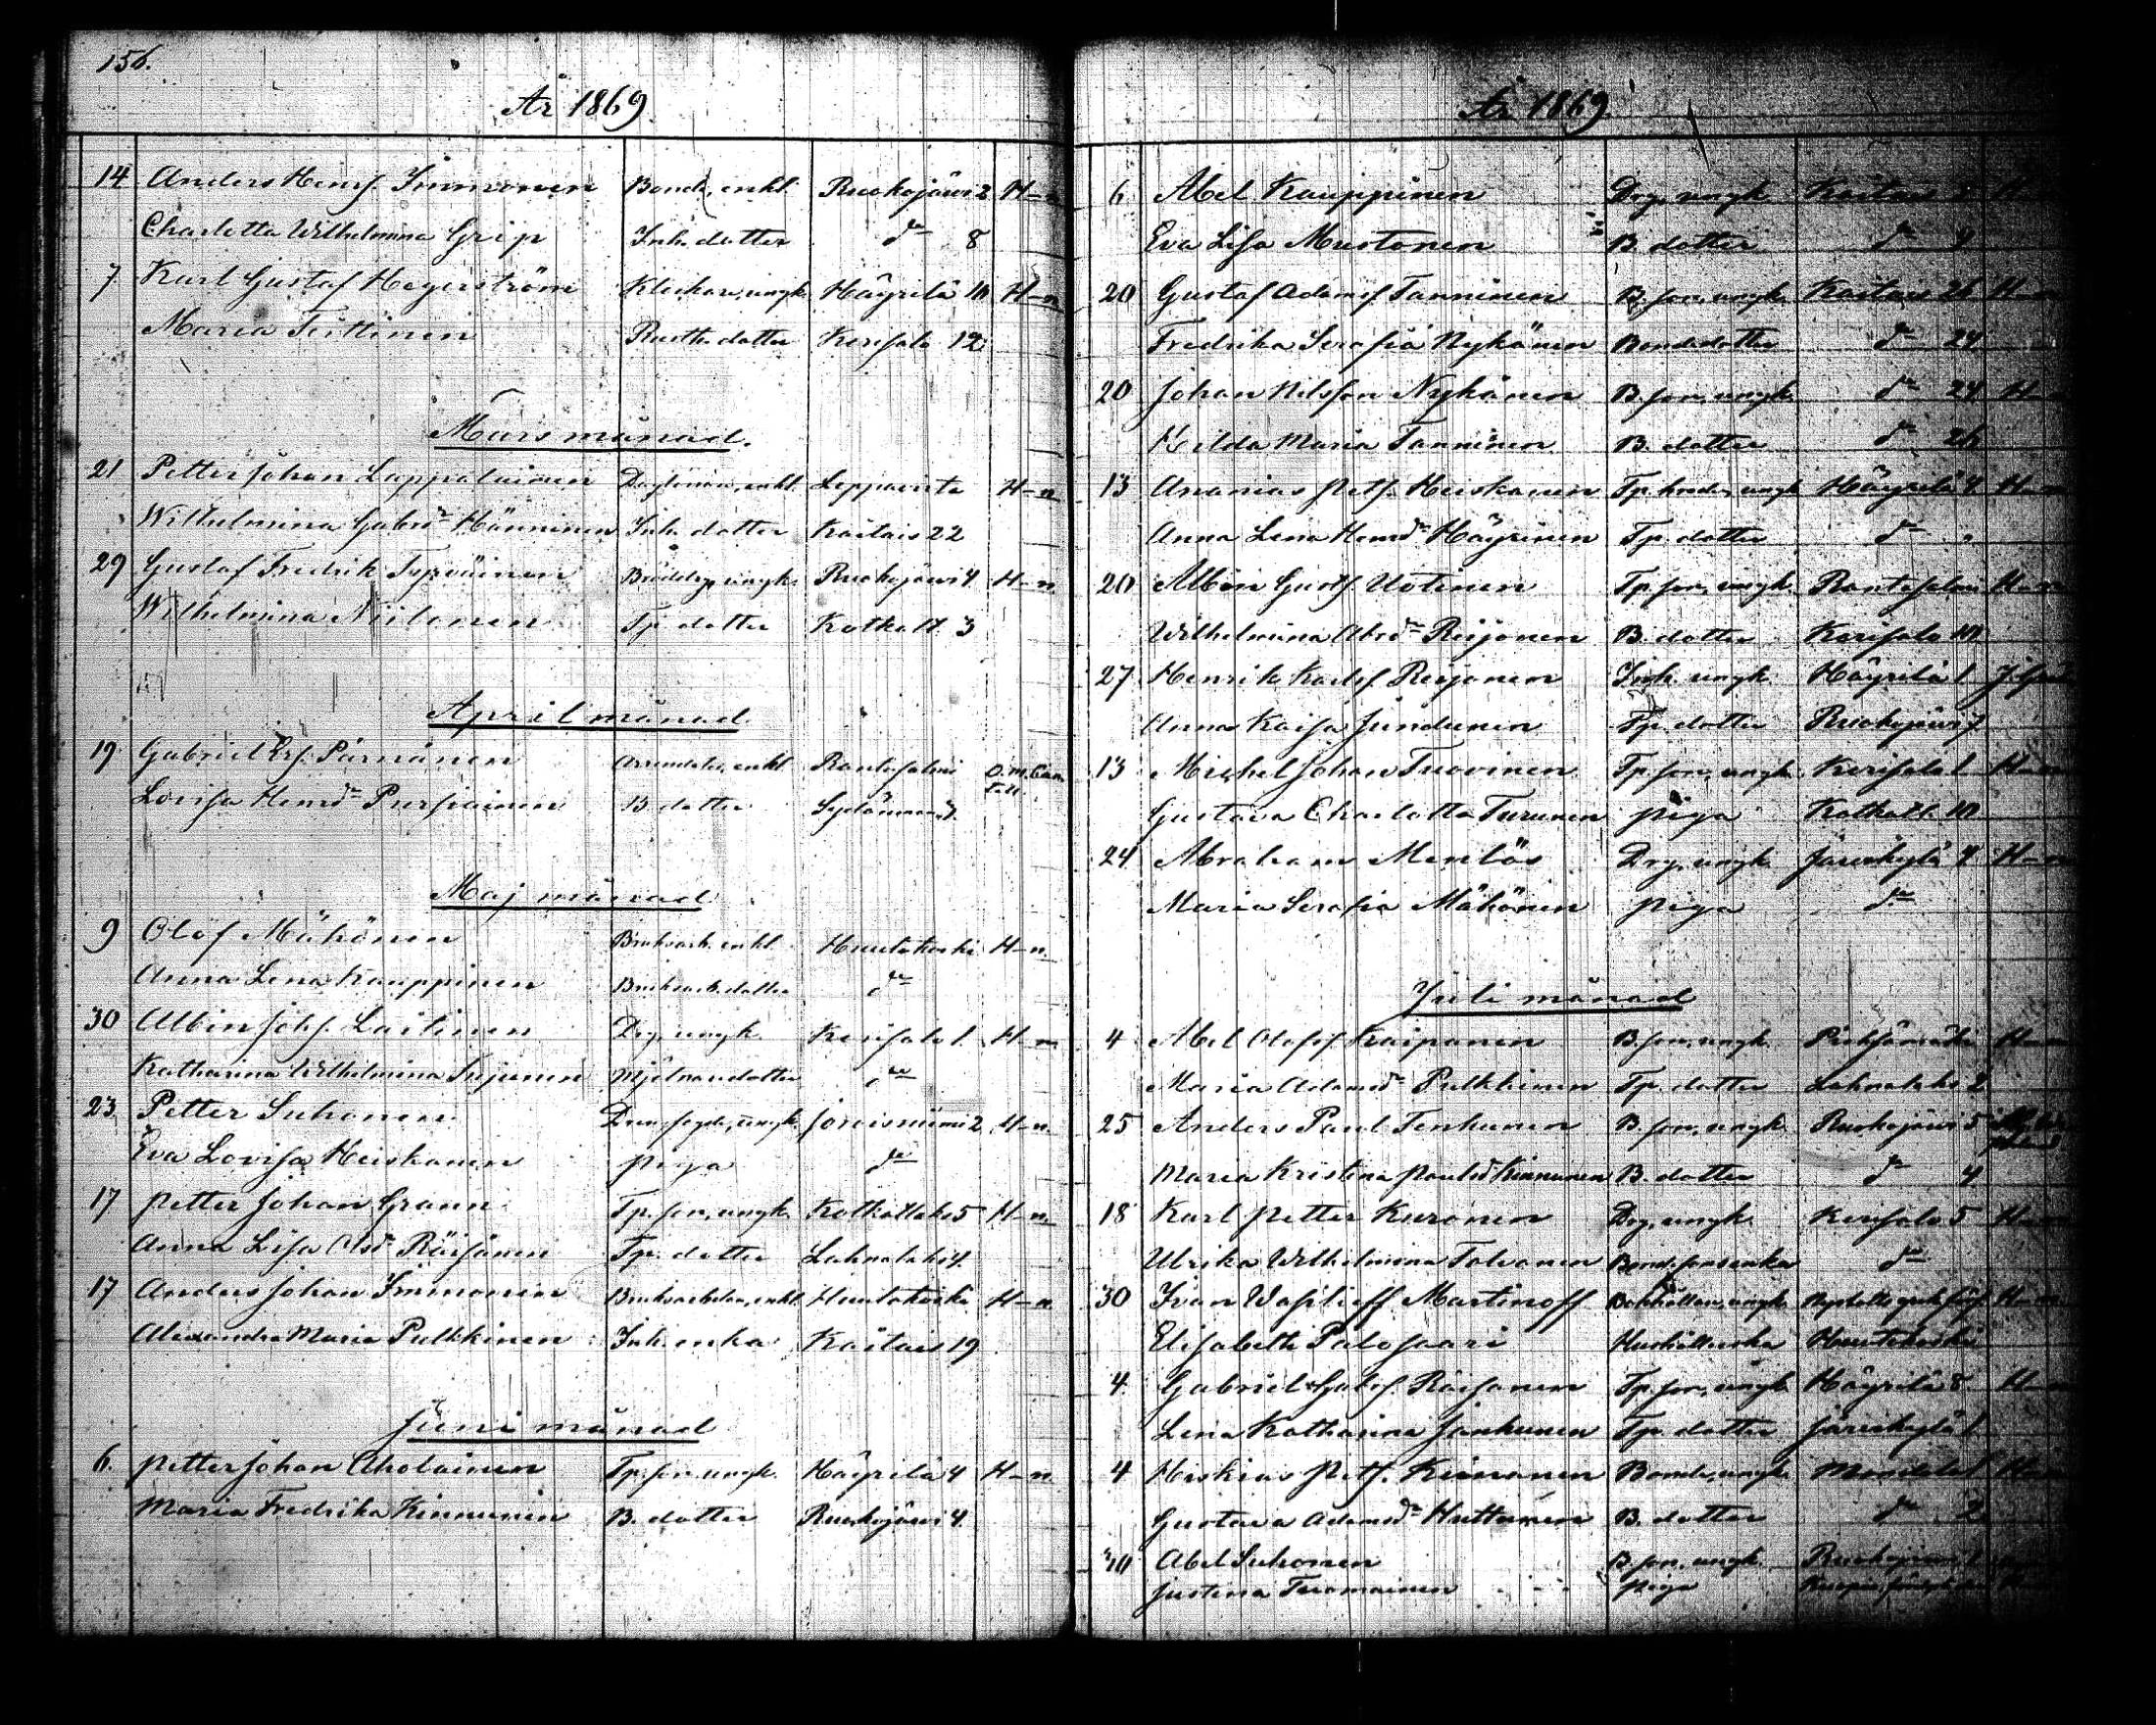 156.
År 1869.
14 Anders Henrs. Immonen Bonde, enkl. Ruokojärvi 2 H-n
Charlotta Wilhelmina Grip Inh. dotter do 8
7 Karl Gustaf Hegerström Klockare, ungk. Häyrilä 10 H-n
Maria Teittinen Rusth. dotter Kerisalo 12
Mars månad.
21 Petter Johan Lappalainen enkl. Leppävirta H-n
Wilhelmina Gabrsdr Hänninen Inh. dotter Kaitais 22
29 Gustaf Fredrik Tyrväinen ungk. Ruokojärvi 4 H-n.
Wilhelmina Niilonen Tp. dotter Kotkatl. 3
April månad.
19 Gabriel Ers. Pärnänen Arrendator, enkl. Rantasalmi
Lovisa Henrsdr Pursiainen B. dotter
Maj månad
9 Olof Mähönen Bruksarb. enkl. Huutokoski H-n.
Anna Lena Kauppinen Bruksarb. dotter do
30 Albin Johs. Laitinen Drg. ungk. Kerisalo 1 H-n
Katharina Wilhelmina Mjölnaredotter do
23 Petter Suhonen ungk. Joroisniemi 2 H-n.
Eva Lovisa Heiskanen piga do
17 Petter Johan Grann Tp. son, ungk. Kotkatlaks 5 H-n.
Anna Lisa Räisänen Tp. dotter Lahnalaks 4.
17 Anders Johan Immonen enkl. Huutokoski H-n
Alexandra Maria Pulkkinen Inh. enka Kaitais 19
Juni månad
6. Petter Johan Aholainen Tp. son, ungk. Häyrilä 4 H-n.
Maria Fredrika Kinnunen B. dotter Ruokojärvi 4.
År 1869.
6 Abel Kauppinen Drg. ungk. Kaitais
Eva Lisa Mustonen B. dotter do
20 Gustaf Adams. Tanninen B. son, ungk. Kaitais 26 H-n
Fredrika Serafia Nykänen Bondedotter do 24
20 Johan Nilsson Nykänen B. son, ungk. do 24 H-n
Hilda Maria Tanninen B. dotter do 26
13 Ananias Pets. Heiskanen ungk. Häyrilä H-n
Anna Lena Henrsdr Häyrinen Tp. dotter do
20 Albin Gusts. Uotinen Tp. son, ungk. Rantasalmi H-n
Wilhelmina Absdr Reijonen B. dotter Kerisalo 10
27 Henrik Karls. Reijonen Inh. ungk. Häyrilä 1
Anna Kaisa Tp. dotter Ruokojärvi 7
13 Michel Johan Tuovinen Tp. son, ungk. Kerisalo 1 H-n
Gustava Charlotta Turunen piga Kotkatl. 10
24 Abraham Drg. ungk. Järvikylä 4 H-n
Maria Serafia Mähönen piga do
Juli månad
4 Abel Olofs. Kaipanen B. son, ungk. Pieksämäki H-n
Maria Adamsdr Pulkkinen Tp. dotter Lahnalaks 2
25 Anders Paul Tenhunen B. son, ungk. Ruokojärvi 5
Maria Kristina Paulsdr Kinnunen B. dotter do 4
18 Karl Petter Kuronen Drg. ungk. Kerisalo 5 H-n
Ulrika Wilhelmina Tolvanen do
30 Ivan Wasilieff Martinoff Bokhållare, ungk. H-n
Elisabeth Palosaari Hushållerska Huutokoski
4 Gabriel Gabrs. Räisänen Tp. son, ungk. Häyrilä 8 H-n
Lena Katharina Janhunen Tp. dotter Järvikylä 1
4 Heskias Pets. Bonde, ungk. H-n
Gustava Adamsdr Huttunen B. dotter do 2
Abel Suhonen B. son, ungk. Ruokojärvi
Justina Tuomainen piga